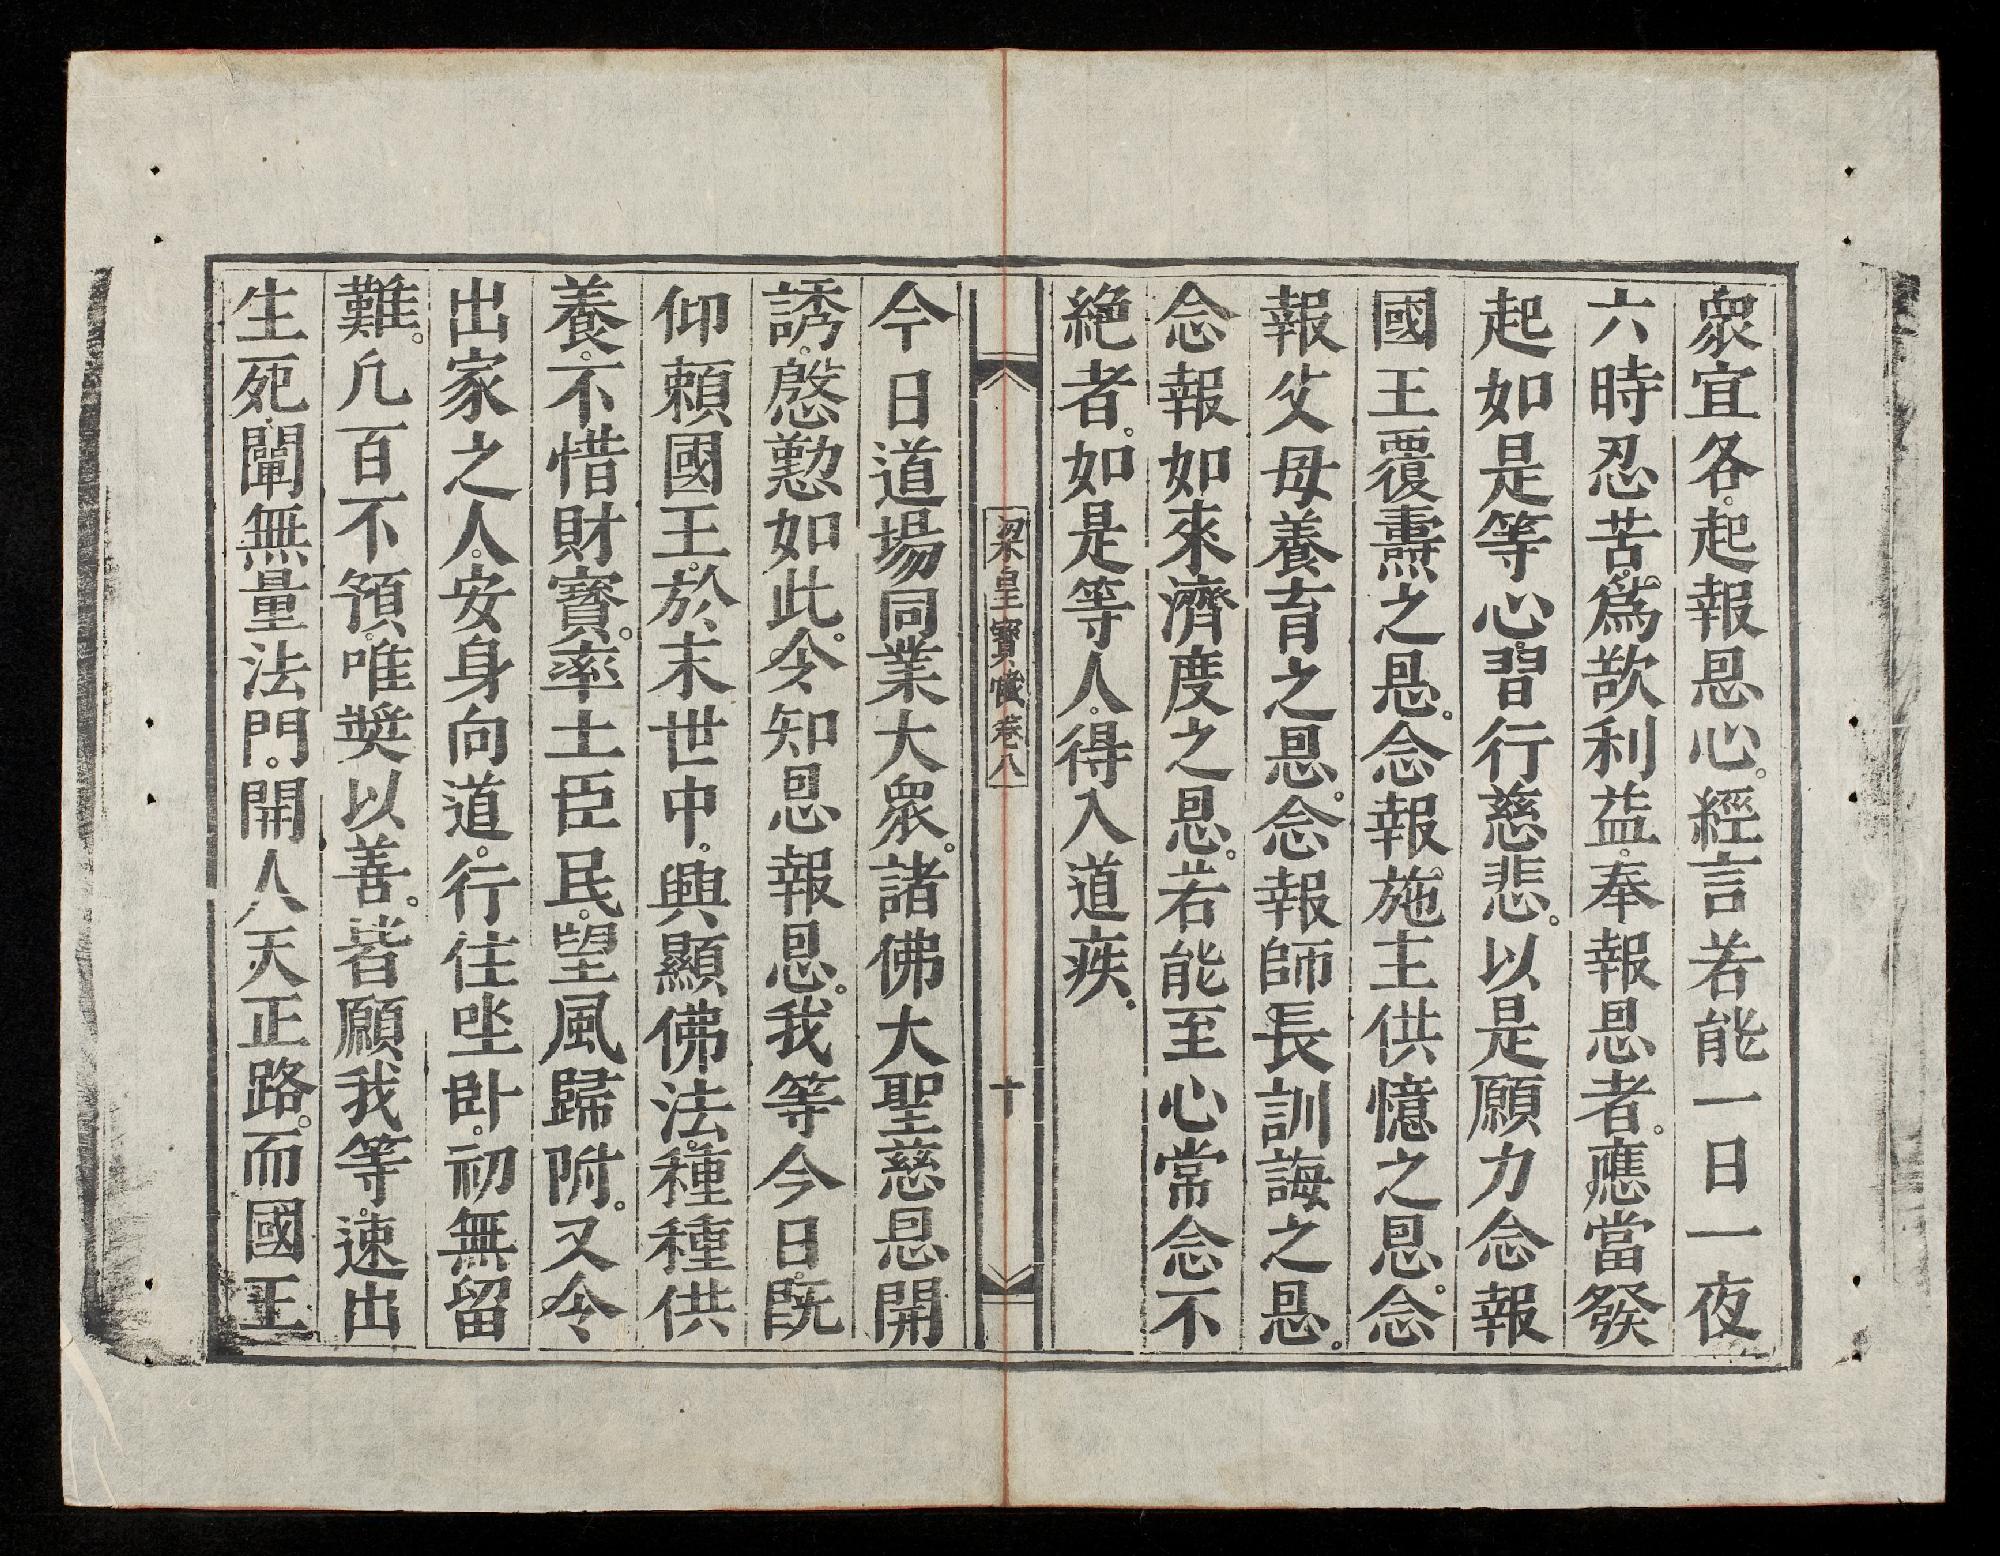 衆宜各起報恩心。經言若能一日一夜
六時忍苦。爲歎利益。奉報恩者。應當發
起如是等心。習行慈悲。以是願力念報
國王覆燾之恩。念報施主供憶之恩。念
報父母養育之恩。念報師長訓誨之恩。
念報如來濟度之恩。若能至心常念不
絶者。如是等人。得入道疾。
梁皇寶懺卷八
十
今日道場同業大衆。諸佛大聖慈恩開
誘。慇懃如此。令知恩報恩。我等今日。既
仰賴國王。於末世中。興顯佛法。種種供
養。不惜財寶。率土臣民。望風歸附。又令
出家之人。安身向道。行住坐卧。初無留
難。凡百不預。唯奬以善。皆願我等。速出
生死。闡無量法門。開人天正路。而國王